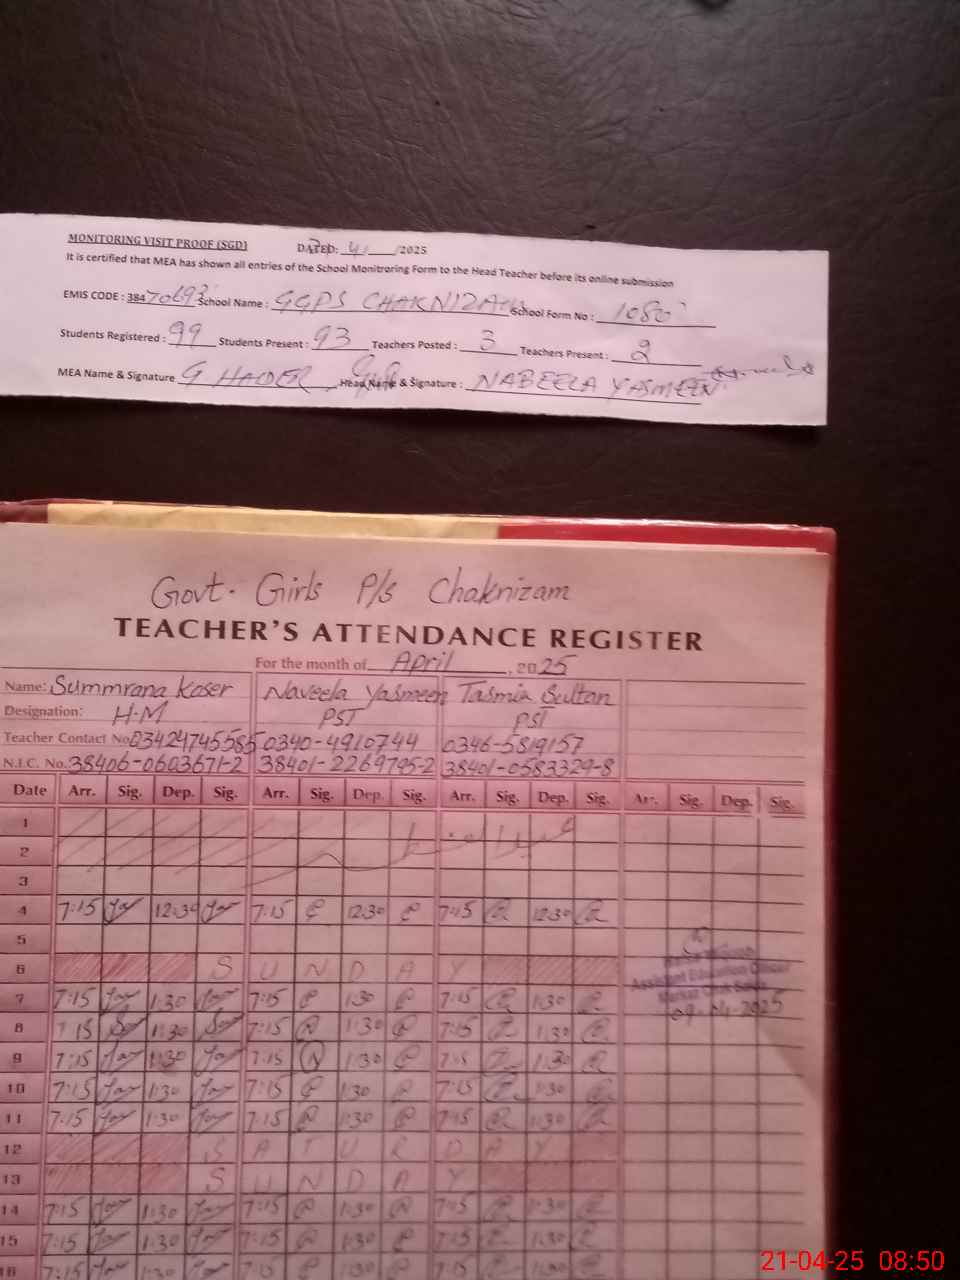 MONITORING VISIT PROOF (SGD) DATED: 4/ /2025
It is certified that MEA has shown all entries of the School Monitroring Form to the Head Teacher before its online submission
EMIS CODE : 38470693 School Name : GGPS CHAKNIZAM School Form No : 1080
Students Registered : 99 Students Present : 93 Teachers Posted : 3 Teachers Present : 2
MEA Name & Signature G HAIDER Head Name & Signature : NABEELA YASMEEN
Govt. Girls P/s Chaknizam
TEACHER'S ATTENDANCE REGISTER
For the month of April, 2025
Name: Summrana Kaser Naveela Yasmeen Tasmia Sultan
Designation: H.M PST PST
Teacher Contact No. 03424745585 0340-4910744 0346-5819157
N.I.C. No. 38406-0603671-2 38401-2269795-2 38401-0583329-8
Date Arr. Sig. Dep. Sig. Arr. Sig. Dep. Sig. Arr. Sig. Dep. Sig. Arr. Sig. Dep. Sig.
1
2
3
4 7:15 12:30 7:15 12:30 7:15 12:30
5
6 SUNDAY
7 7:15 1:30 7:15 1:30 7:15 1:30
Assistant Education Officer
8 7:15 1:30 7:15 1:30 7:15 1:30
09-04-2025
9 7:15 1:30 7:15 1:30 7:15 1:30
10 7:15 1:30 7:15 1:30 7:15 1:30
11 7:15 1:30 7:15 1:30 7:15 1:30
12 SATURDAY
13 SUNDAY
14 7:15 1:30 7:15 1:30 7:15 1:30
15 7:15 1:30 7:15 1:30 7:15 1:30
16 7:15 1:30 7:15 1:30 7:15 1:30
21-04-25 08:50